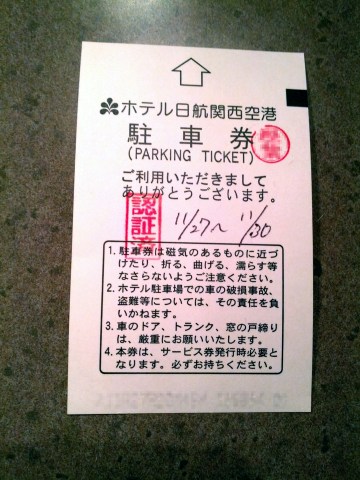 ホテル日航関西空港
駐車券
(PARKING TICKET)
ご利用いただきまして
ありがとうございます。
認証済
11/27〜11/30
1. 駐車券は磁気のあるものに近づ
けたり、折る、曲げる、濡らす等
なさらないようご注意ください。
2. ホテル駐車場での車の破損事故、
盗難等については、その責任を負
いかねます。
3. 車のドア、トランク、窓の戸締り
は、厳重にお願いいたします。
4. 本券は、サービス券発行時必要と
なります。必ずお持ちください。